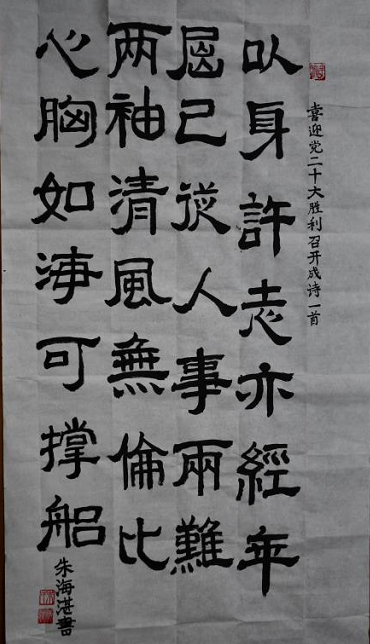 喜迎党二十大胜利召开成诗一首
以身許志亦經年
屈己從人事兩難
两袖清風無倫比
心胸如海可撑船
朱海湛書